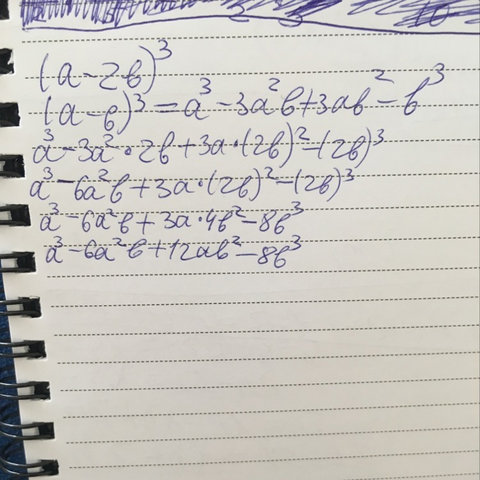 (a-2b)³
(a-b)³=a³-3a²b+3ab²-b³
a³-3a²·2b+3a·(2b)²-(2b)³
a³-6a²b+3a·(2b)²-(2b)³
a³-6a²b+3a·4b²-8b³
a³-6a²b+12ab²-8b³